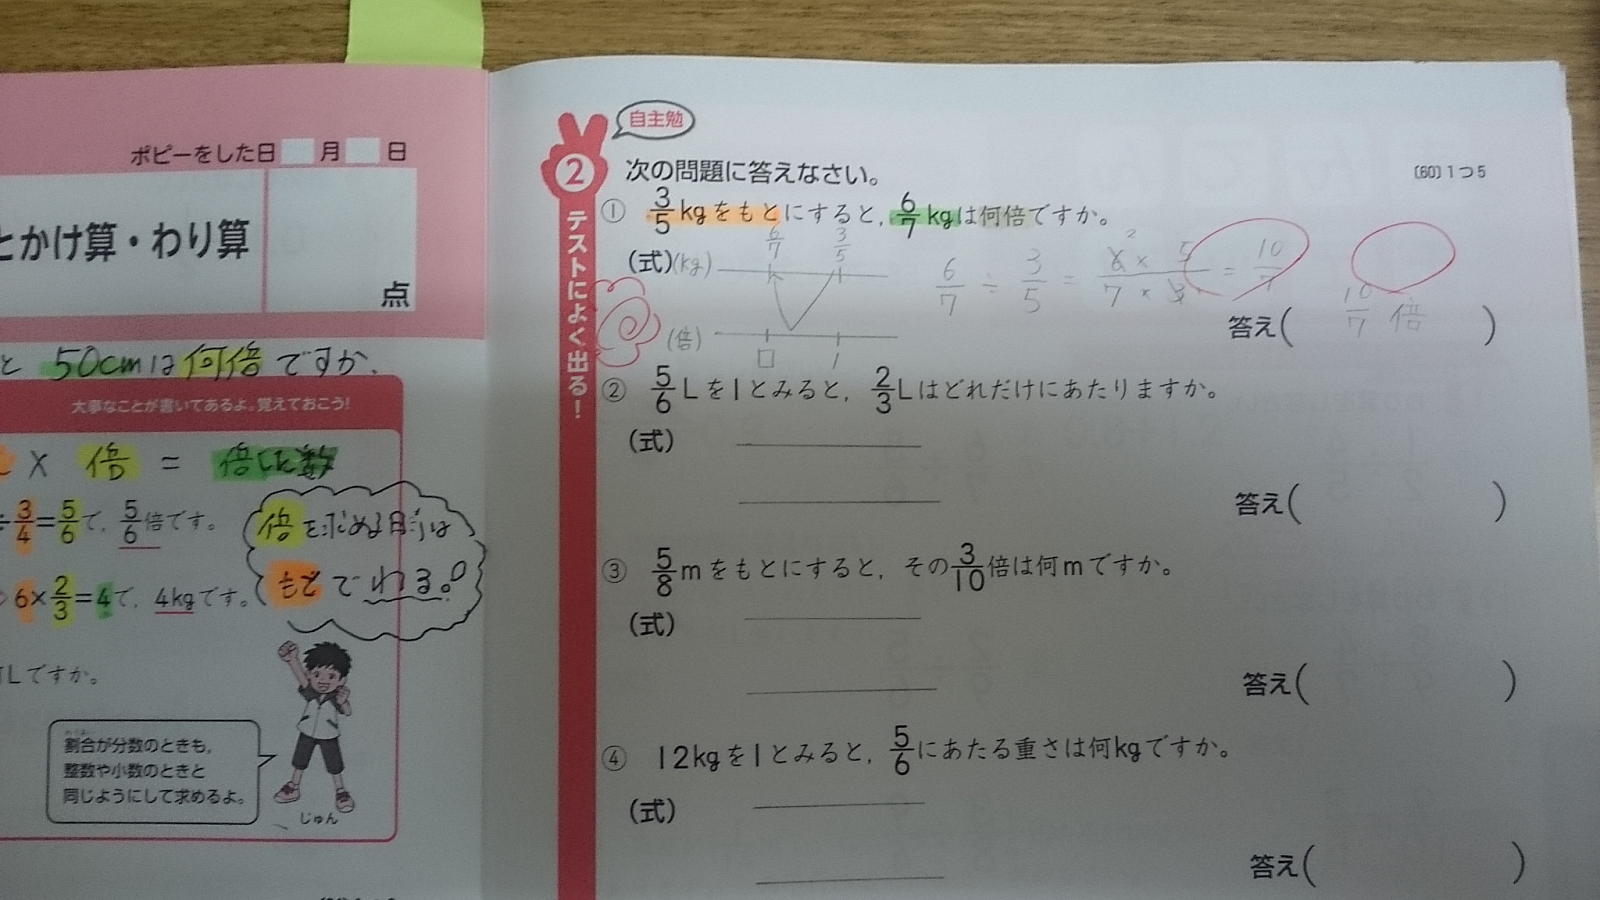 ポピーをした日 月 日
とかけ算・わり算
点
と 50cmは何倍ですか.
大事なことが書いてあるよ。覚えておこう!
× 倍 = 倍した数
÷3/4=5/6で, 5/6倍です。
6×2/3=4で, 4kgです。
倍を求める時は
もとでわる。
Lですか。
割合が分数のときも,
整数や小数のときと
同じようにして求めるよ。
じゅん
自主勉
2
テストによく出る!
次の問題に答えなさい。
(60)1つ5
① 3/5kgをもとにすると, 6/7kgは何倍ですか。
6/7 3/5
(式)(kg)
6/7 ÷ 3/5 = 6×5/7×3 = 10/7
2
(倍)
□ 1
答え( 10/7 倍 )
② 5/6Lを1とみると, 2/3Lはどれだけにあたりますか。
(式)
答え( )
③ 5/8mをもとにすると, その3/10倍は何mですか。
(式)
答え( )
④ 12kgを1とみると, 5/6にあたる重さは何kgですか。
(式)
答え( )